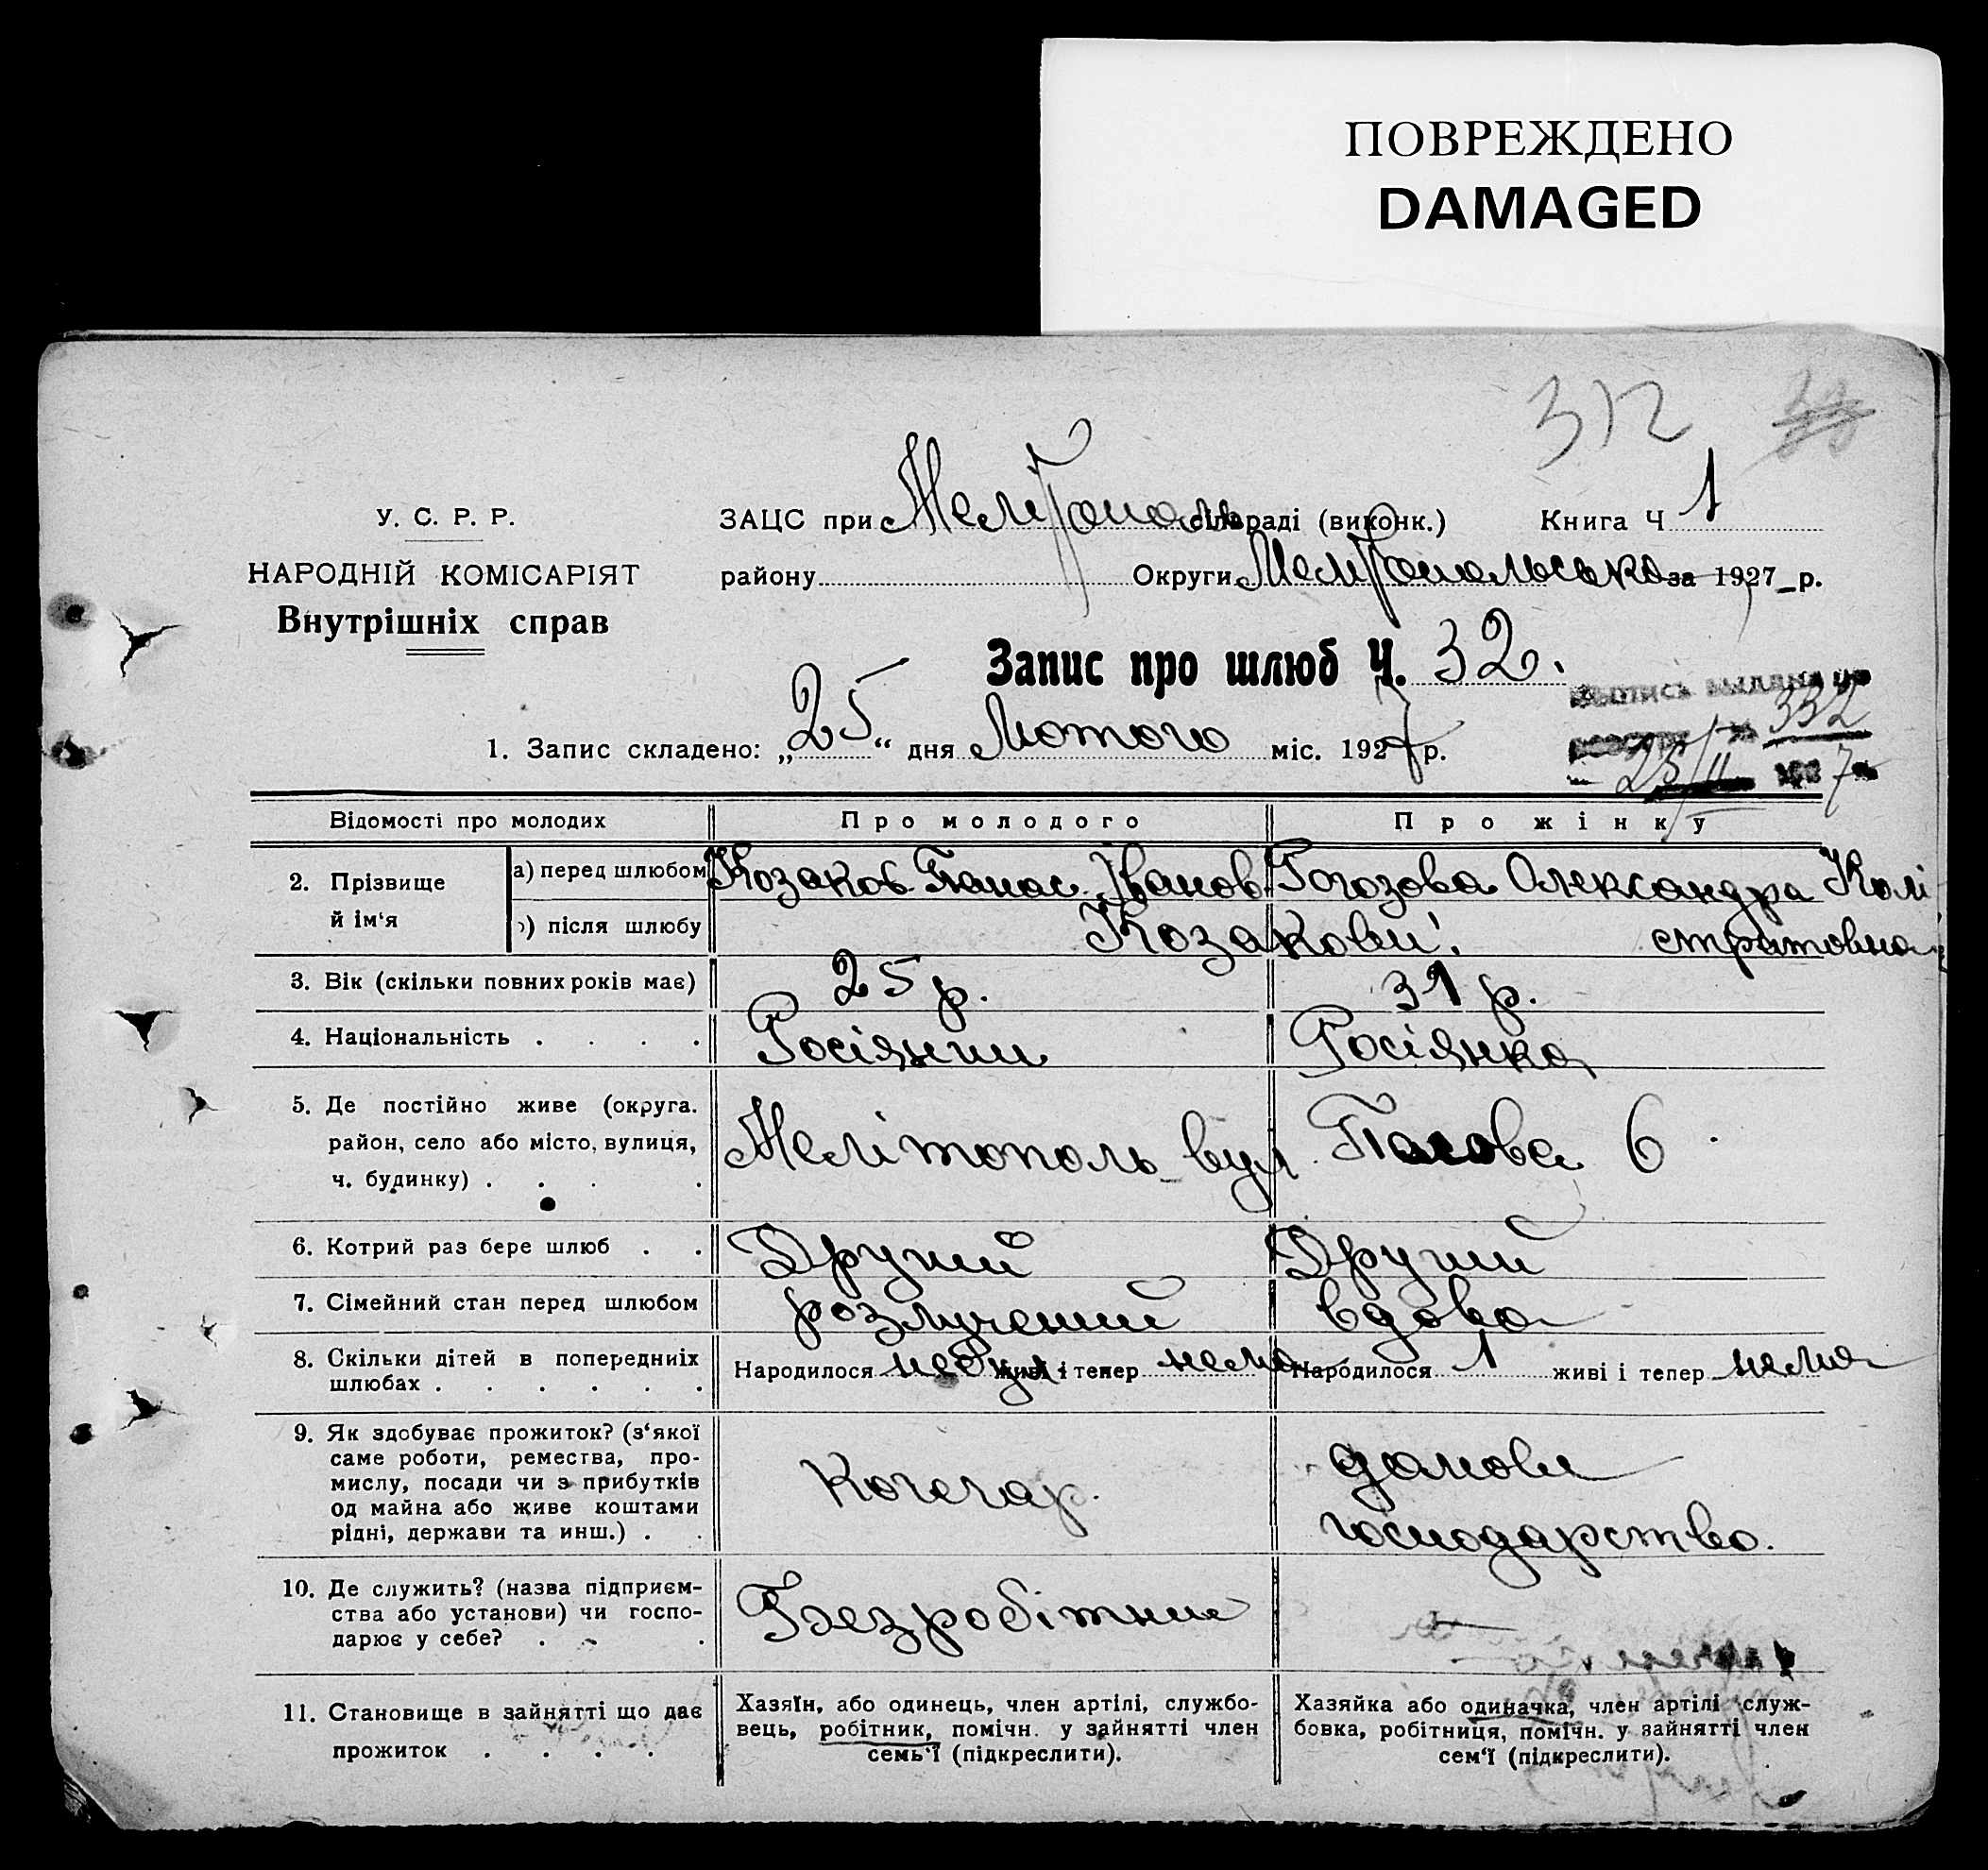 ПОВРЕЖДЕНО
DAMAGED
312
У. С. Р. Р.
НАРОДНІЙ КОМІСАРІЯТ
Внутрішніх справ
ЗАЦС при Мелітополь сільраді (виконк.) Книга Ч 1
району Округи Мелітопольсько за 1927 р.
Запис про шлюб Ч. 32.
выпись выдана
332
25/II 1927
1. Запис складено: „25“ дня Лютого міс. 1927 р.
Відомості про молодих Про молодого Про жінку
2. Прізвище й ім‘я
а) перед шлюбом Козаков Панас Іванов Рогозова Олександра Калі
стратовна
) після шлюбу Козакови!
3. Вік (скільки повних років має) 25 р. 31 р.
4. Національність . . . . Росіянин Росіянка
5. Де постійно живе (округа.
район, село або місто, вулиця,
ч. будинку) . . . .
Мелітополь вул. 6
6. Котрий раз бере шлюб . . Другий Другий
7. Сімейний стан перед шлюбом розлучений вдова
8. Скільки дітей в попередниіх
шлюбах . . . . . .
Народилося небул живі і тепер нема Народилося 1 живі і тепер нема
9. Як здобуває прожиток? (з‘якої
саме роботи, ремества, про-
мислу, посади чи з прибутків
од майна або живе коштами
рідні, держави та инш.) . .
Кочегар.
домове
господарство.
10. Де служить? (назва підприєм-
ства або установи) чи госпо-
дарює у себе? . . .
Безробітний
—
11. Становище в зайнятті що дає
прожиток . . . .
Хазяїн, або одинець, член артілі, службо-
вець, робітник, помічн. у зайнятті член
семь‘ї (підкреслити).
Хазяйка або одиначка, член артілі служ-
бовка, робітниця, помічн. у зайнятті член
сем‘ї (підкреслити).